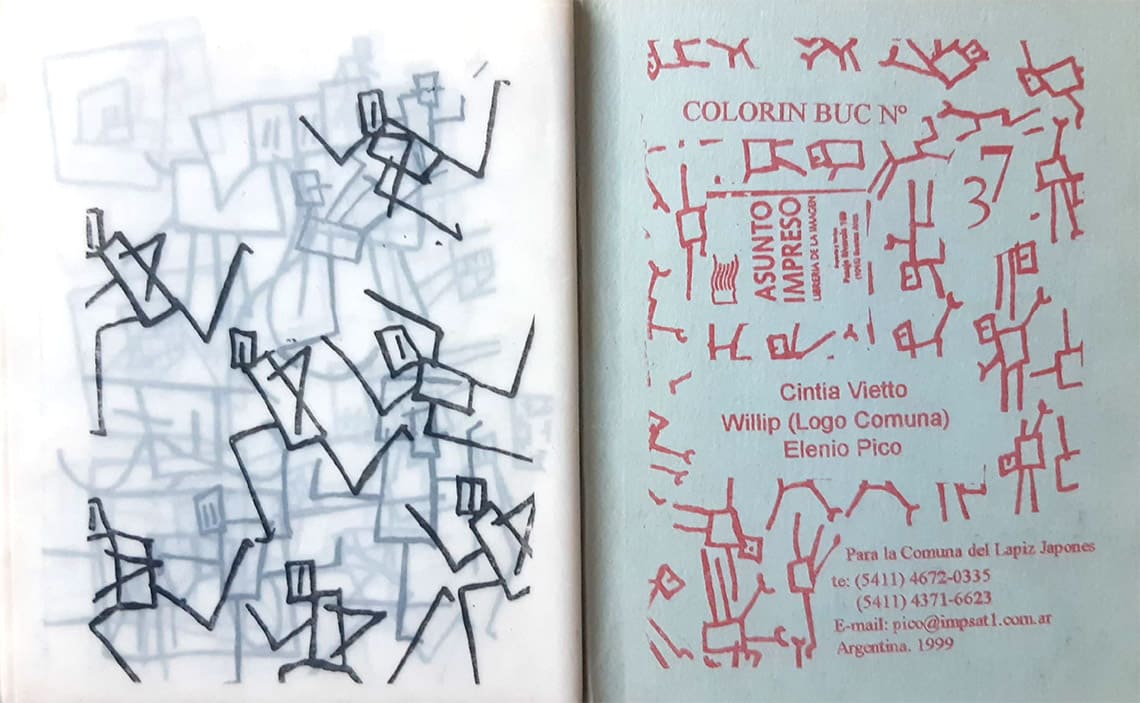 COLORIN BUC Nº
37
ASUNTO
IMPRESO
LIBRERIA DE LA IMAGEN
Cintia Vietto
Willip (Logo Comuna)
Elenio Pico
Para la Comuna del Lapiz Japones
te: (5411) 4672-0335
(5411) 4371-6623
E-mail: pico@impsat1.com.ar
Argentina. 1999